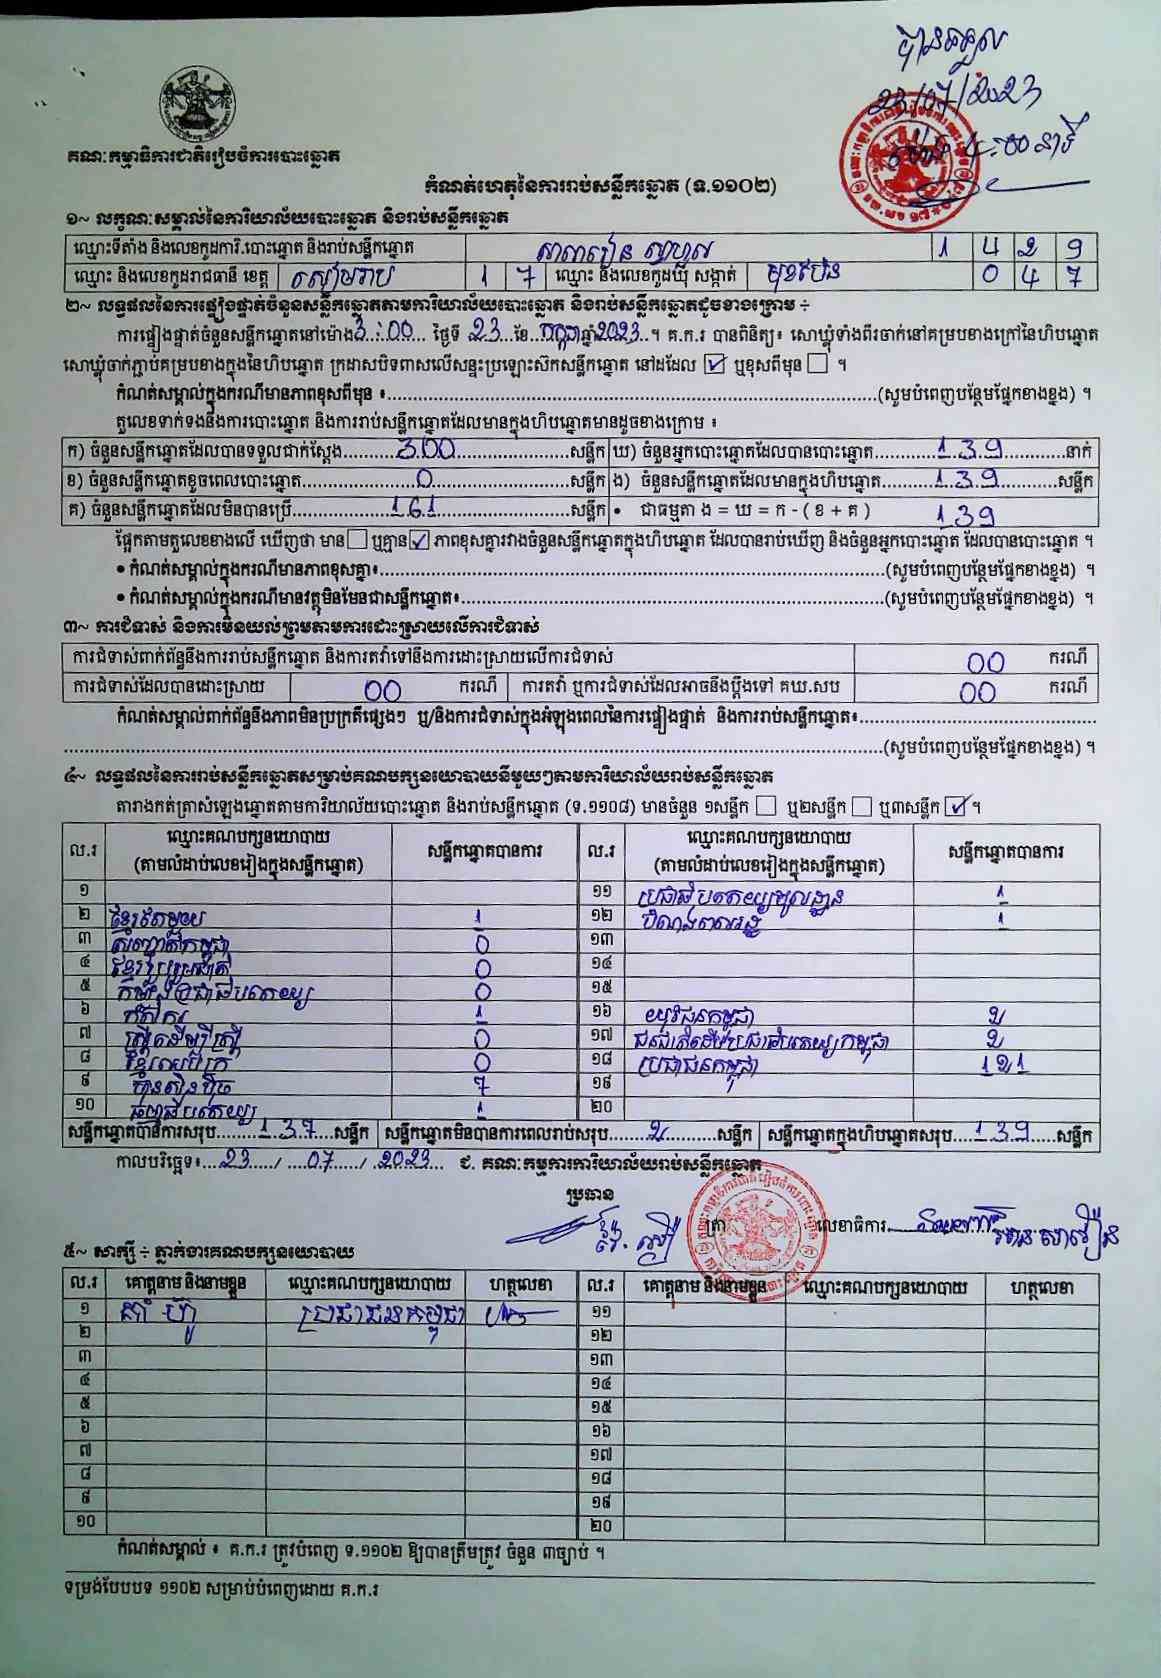 បានទទួល
23/07/2023
ម៉ោង 4:00 នាទី
គណៈកម្មាធិការជាតិរៀបចំការបោះឆ្នោត
កំណត់ហេតុនៃការរាប់សន្លឹកឆ្នោត (ទ.១១០២)
១~ លក្ខណៈសម្គាល់នៃការិយាល័យបោះឆ្នោត និងរាប់សន្លឹកឆ្នោត
ឈ្មោះទីតាំង និងលេខកូដការិ.បោះឆ្នោត និងរាប់សន្លឹកឆ្នោត សាលារៀន 1 4 2 9
ឈ្មោះ និងលេខកូដរាជធានី ខេត្ត សៀមរាប 1 7 ឈ្មោះ និងលេខកូដឃុំ សង្កាត់ 0 4 7
២~ លទ្ធផលនៃការផ្ទៀងផ្ទាត់ចំនួនសន្លឹកឆ្នោតតាមការិយាល័យបោះឆ្នោត និងរាប់សន្លឹកឆ្នោតដូចខាងក្រោម ÷
ការផ្ទៀងផ្ទាត់ចំនួនសន្លឹកឆ្នោតនៅម៉ោង 3:00 ថ្ងៃទី 23 ខែ កក្កដា ឆ្នាំ 2023 ។ គ.ក.រ បានពិនិត្យ៖ សោឃ្លុំទាំងពីរចាក់នៅគម្របខាងក្រៅនៃហិបឆ្នោត
សោឃ្លុំចាក់ភ្ជាប់គម្របខាងក្នុងនៃហិបឆ្នោត ក្រដាសបិទពាសលើសន្ទះប្រឡោះស៊កសន្លឹកឆ្នោត នៅដដែល ☑ ឬខុសពីមុន ☐ ។
កំណត់សម្គាល់ក្នុងករណីមានភាពខុសពីមុន ៖ (សូមបំពេញបន្ថែមផ្នែកខាងខ្នង) ។
តួលេខទាក់ទងនឹងការបោះឆ្នោត និងការរាប់សន្លឹកឆ្នោតដែលមានក្នុងហិបឆ្នោតមានដូចខាងក្រោម ៖
ក) ចំនួនសន្លឹកឆ្នោតដែលបានទទួលជាក់ស្តែង 300 សន្លឹក ឃ) ចំនួនអ្នកបោះឆ្នោតដែលបានបោះឆ្នោត 139 នាក់
ខ) ចំនួនសន្លឹកឆ្នោតខូចពេលបោះឆ្នោត 0 សន្លឹក ង) ចំនួនសន្លឹកឆ្នោតដែលមានក្នុងហិបឆ្នោត 139 សន្លឹក
គ) ចំនួនសន្លឹកឆ្នោតដែលមិនបានប្រើ 161 សន្លឹក • ជាធម្មតា ង = ឃ = ក - ( ខ + គ ) 139
ផ្អែកតាមតួលេខខាងលើ ឃើញថា មាន ☐ ឬគ្មាន ☑ ភាពខុសគ្នារវាងចំនួនសន្លឹកឆ្នោតក្នុងហិបឆ្នោត ដែលបានរាប់ឃើញ និងចំនួនអ្នកបោះឆ្នោត ដែលបានបោះឆ្នោត ។
• កំណត់សម្គាល់ក្នុងករណីមានភាពខុសគ្នា៖ (សូមបំពេញបន្ថែមផ្នែកខាងខ្នង) ។
• កំណត់សម្គាល់ក្នុងករណីមានវត្ថុមិនមែនជាសន្លឹកឆ្នោត៖ (សូមបំពេញបន្ថែមផ្នែកខាងខ្នង) ។
៣~ ការជំទាស់ និងការមិនយល់ព្រមតាមការដោះស្រាយលើការជំទាស់
ការជំទាស់ពាក់ព័ន្ធនឹងការរាប់សន្លឹកឆ្នោត និងការតវ៉ាទៅនឹងការដោះស្រាយលើការជំទាស់ 00 ករណី
ការជំទាស់ដែលបានដោះស្រាយ 00 ករណី ការតវ៉ា ឬការជំទាស់ដែលអាចនឹងប្តឹងទៅ គឃ.សប 00 ករណី
កំណត់សម្គាល់ពាក់ព័ន្ធនឹងភាពមិនប្រក្រតីផ្សេងៗ ឬ/និងការជំទាស់ក្នុងអំឡុងពេលនៃការផ្ទៀងផ្ទាត់ និងការរាប់សន្លឹកឆ្នោត៖
(សូមបំពេញបន្ថែមផ្នែកខាងខ្នង) ។
៤~ លទ្ធផលនៃការរាប់សន្លឹកឆ្នោតសម្រាប់គណបក្សនយោបាយនីមួយៗតាមការិយាល័យរាប់សន្លឹកឆ្នោត
តារាងកត់ត្រាសំឡេងឆ្នោតតាមការិយាល័យបោះឆ្នោត និងរាប់សន្លឹកឆ្នោត (ទ.១១០៨) មានចំនួន ១សន្លឹក ☐ ឬ២សន្លឹក ☐ ឬ៣សន្លឹក ☑ ។
ល.រ ឈ្មោះគណបក្សនយោបាយ (តាមលំដាប់លេខរៀងក្នុងសន្លឹកឆ្នោត) សន្លឹកឆ្នោតបានការ ល.រ ឈ្មោះគណបក្សនយោបាយ (តាមលំដាប់លេខរៀងក្នុងសន្លឹកឆ្នោត) សន្លឹកឆ្នោតបានការ
១ ១១ ប្រជាធិបតេយ្យមូលដ្ឋាន 1
២ ខ្មែរតែមួយ 1 ១២ បំណងពលរដ្ឋ 1
៣ សញ្ជាតិកម្ពុជា 0 ១៣
៤ ខ្មែររួបរួមជាតិ 0 ១៤
៥ កម្លាំងប្រជាធិបតេយ្យ 0 ១៥
៦ កសិករ 1 ១៦ យុវជនកម្ពុជា 2
៧ ស្ត្រីដើម្បីស្ត្រី 0 ១៧ ជនជាតិដើមប្រជាធិបតេយ្យកម្ពុជា 2
៨ ខ្មែរអភិរក្ស 0 ១៨ ប្រជាជនកម្ពុជា 121
៩ ហ្វ៊ុនស៊ិនប៉ិច 7 ១៩
១០ ធម្មាធិបតេយ្យ 1 ២០
សន្លឹកឆ្នោតបានការសរុប 137 សន្លឹក សន្លឹកឆ្នោតមិនបានការពេលរាប់សរុប 2 សន្លឹក សន្លឹកឆ្នោតក្នុងហិបឆ្នោតសរុប 139 សន្លឹក
កាលបរិច្ឆេទ៖ 23 / 07 / 2023 ជ. គណៈកម្មការការិយាល័យរាប់សន្លឹកឆ្នោត
ប្រធាន
ត្រា លេខាធិការ
៥~ សាក្សី ÷ ភ្នាក់ងារគណបក្សនយោបាយ
ល.រ គោត្តនាម និងនាមខ្លួន ឈ្មោះគណបក្សនយោបាយ ហត្ថលេខា ល.រ គោត្តនាម និងនាមខ្លួន ឈ្មោះគណបក្សនយោបាយ ហត្ថលេខា
១ ប្រជាជនកម្ពុជា ១១
២ ១២
៣ ១៣
៤ ១៤
៥ ១៥
៦ ១៦
៧ ១៧
៨ ១៨
៩ ១៩
១០ ២០
កំណត់សម្គាល់ ៖ គ.ក.រ ត្រូវបំពេញ ទ.១១០២ ឱ្យបានត្រឹមត្រូវ ចំនួន ៣ច្បាប់ ។
ទម្រង់បែបបទ ១១០២ សម្រាប់បំពេញដោយ គ.ក.រ